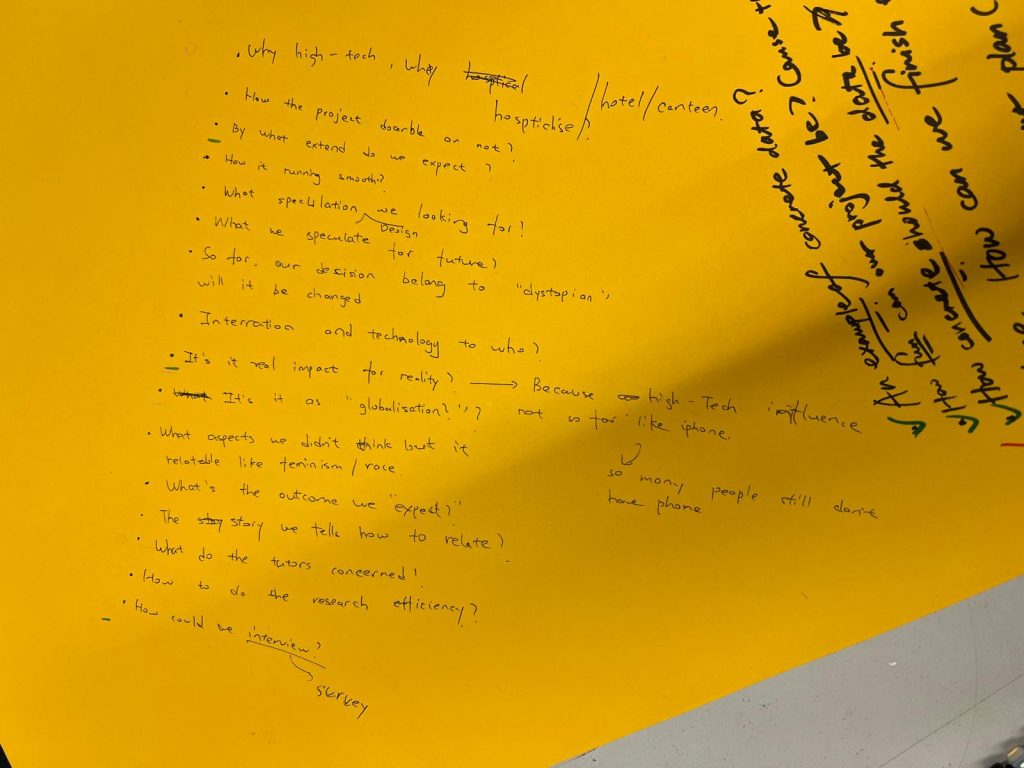 • Why high-tech, why hosptical
hosptichise/hotel/canteen?
• How the project doable or not?
• By what extend do we expect?
• How it running smooth?
• What speculation we looking for!
Design
• What we speculate for future?
• So far, our decision belong to "dystopian",
will it be changed
• Interration and technology to who?
• It's it real impact for reality? → Because high-Tech influence
not so far like iphone.
so many people still don't
have phone
• What It's it as "globalisation?"?
• What aspects we didn't think but it
relatable like feminism/race.
• What's the outcome we "expect?"
• The stoy story we tells how to relate?
• What do the tutors concerned!
• How to do the research efficiency?
• How could we interview?
survey
An example of concrete data?
How can our project be? Cause th
How concrete should the data be?
How can we finish
plan